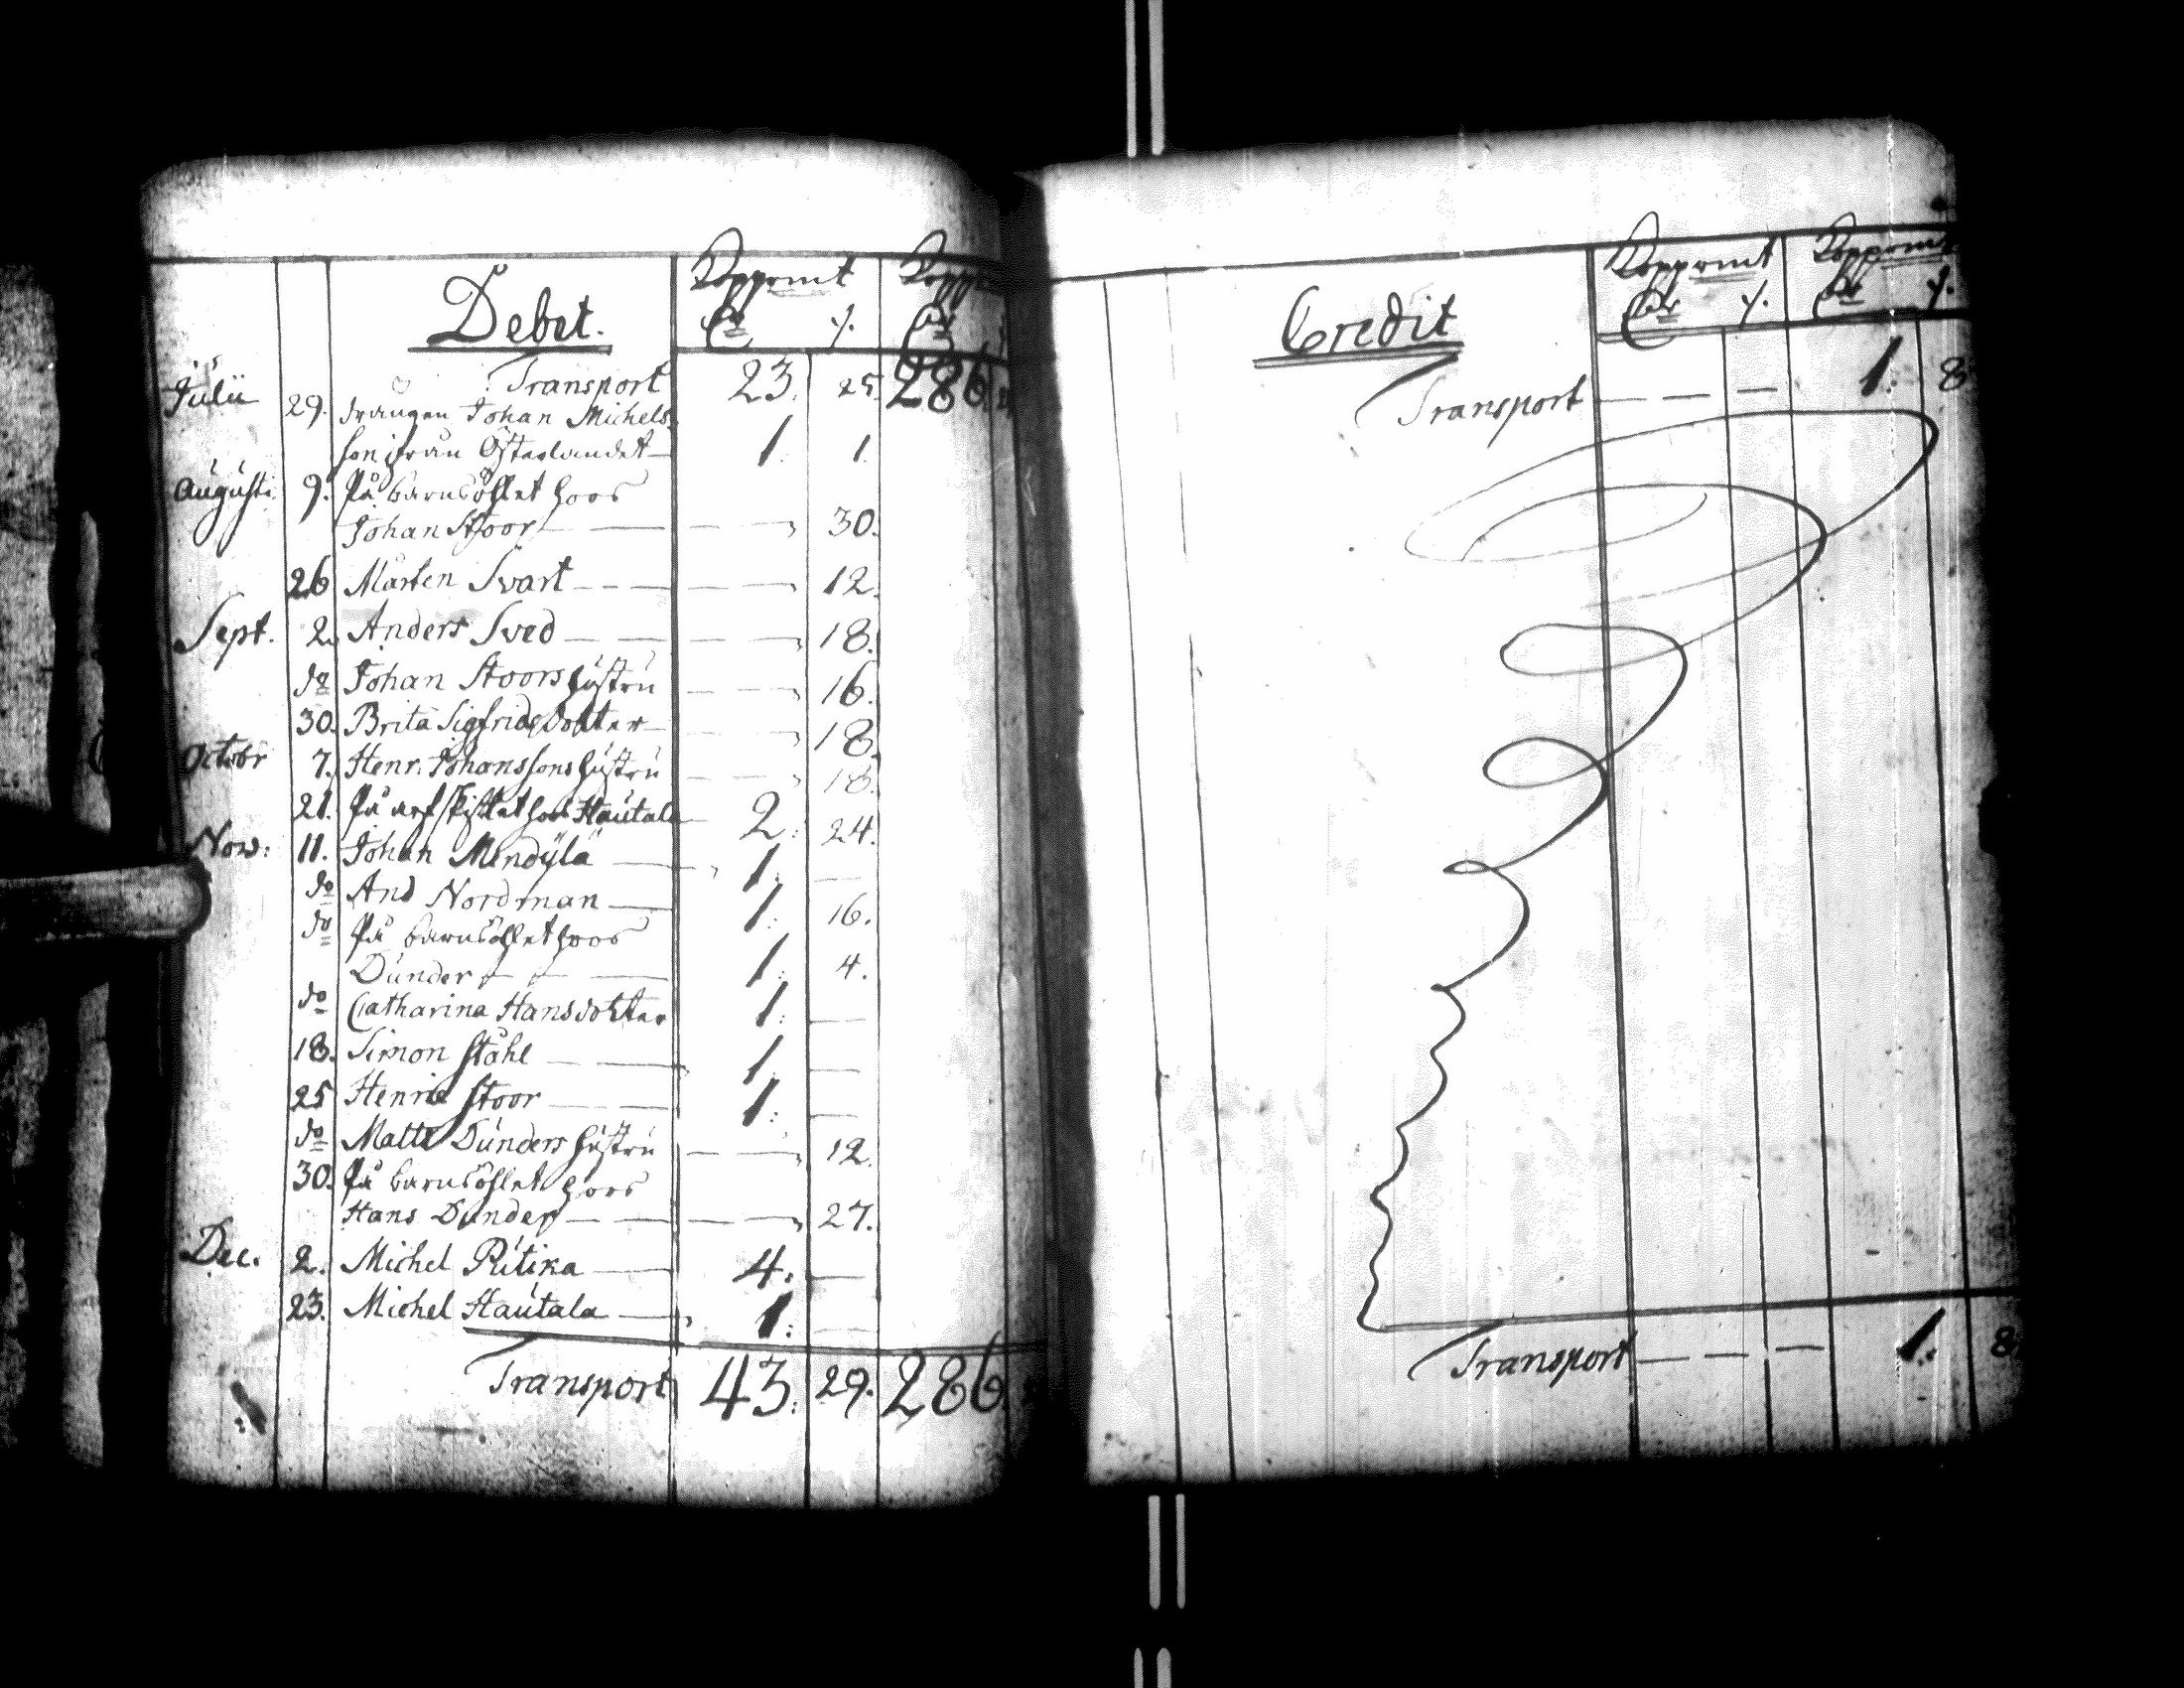 Debet. Koppormt Kopp
Transport 23. 25. 286.
Julii 29. drängen Johan Michels
son ifrån Österlandet 1. 1.
Augusti 9. På barnsöhlet hoos
Johan Stoor 30.
26 Mårten Svart 12.
Sept. 2. Anders Sved 18.
do Johan Stoors hústrú 16.
30. Brita Sigfridsdotter 18.
Octobr 7. Henr. Johanssons hústrú 18.
21. På arfskiftet hoos Haútala 2. 24.
Nov: 11. Johan Mendÿlä 1. —
do And Nordman 1. 16.
do På barnsöhlet hoos
Dúnder 1. 4.
do Catharina Hansdotter 1. —
18. Simon Ståhl 1. —
25 Henric Stoor 1. —
do Matts Dúnders hústrú 12.
30. På barnsöhlet hoos
Hans Dúnder 27.
Dec. 2. Michel Pitika 4. —
23. Michel Haútala 1. —
Transport 43. 29. 286
Credit Koppormt Koppormt
Transport — — — 1. 8
Transport — — — 1. 8